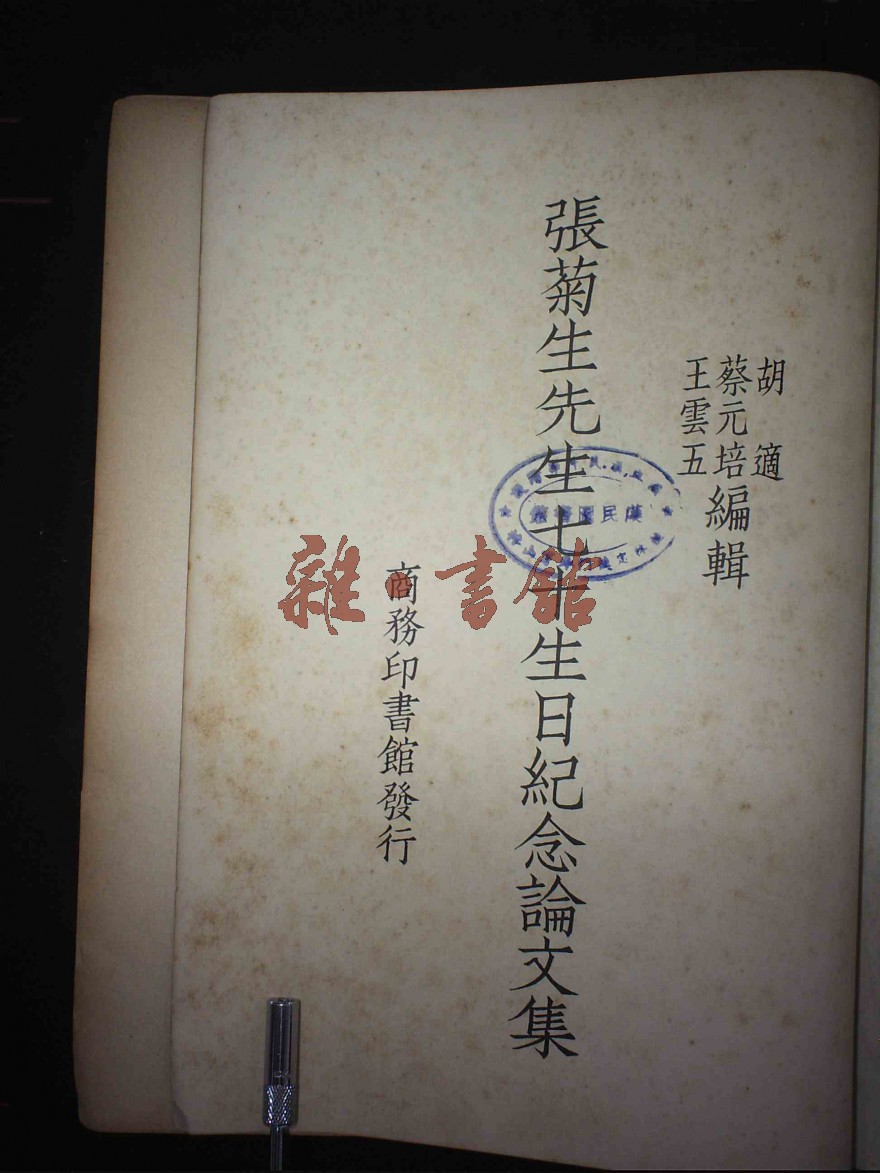 胡適
蔡元培編輯
王雲五
張菊生先生七十生日紀念論文集
商務印書館發行
雜·書館